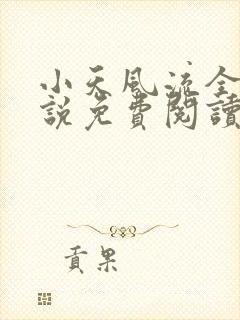 小天風流全
說免費閱讀
貢果